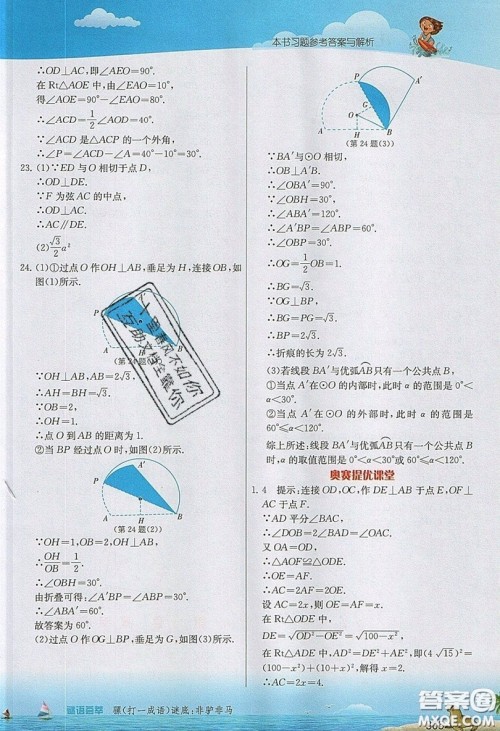 本书习题参考答案与解析
∴OD⊥AC,即∠AEO=90°.
在Rt△AOE中,由∠EAO=10°,
得∠AOE=90°-∠EAO=80°.
∴∠ACD=1/2∠AOD=40°.
∵∠ACD是△ACP的一个外角,
∴∠P=∠ACD-∠A=40°-10°=30°.
23. (1)∵ED与O相切于点D,
∴OD⊥DE.
∵F为弦AC的中点,
∴OD⊥AC.
∴AC∥DE.
(2)√3/2 a²
24. (1)①过点O作OH⊥AB,垂足为H,连接OB,如
图(1)所示.
(第24题(1))
∵OH⊥AB,AB=2√3.
∴AH=BH=√3.
∵OB=2,
∴OH=1.
∴点O到AB的距离为1.
②当BP经过点O时,如图(2)所示.
P
A H B
(第24题(2))
∵OH=1,OB=2,
∴OH/OB=1/2.
∴∠OBH=30°.
由折叠可得:∠A′BP=∠ABP=30°.
∴∠ABA′=60°.
故答案为60°.
(2)过点O作OG⊥BP,垂足为G,如图(3)所示.
A′
P
G
O
A H B
(第24题(3))
∵BA′与⊙O相切,
∴OB⊥A′B.
∴∠OBA′=90°.
∵∠OBH=30°,
∴∠ABA′=120°.
∴∠A′BP=∠ABP=60°.
∴∠OBP=30°.
∴OG=1/2OB=1.
∴BG=√3.
∵OG⊥BP,
∴BG=PG=√3.
∴BP=2√3.
∴折痕的长为2√3.
(3)若线段BA′与优弧AB只有一个公共点B,
①当点A′在⊙O的内部时,此时α的范围是0°<
α<30°.
②当点A′在⊙O的外部时,此时α的范围是
60°≤α<120°.
综上所述:线段BA′与优弧AB只有一个公共点B
时,α的取值范围是0°<α<30°或60°≤α<120°.
奥赛提优课堂
1. 4 提示:连接OD,OC,作DE⊥AB于点E,OF⊥
AC于点F.
∵AD平分∠BAC,
∴∠DOB=∠BAC.
又OA=OD=5,
∴△AOF≌△ODE.
∴OE=AF.
∴AC=2AF=2OE.
设AC=2x,则OE=AF=x.
在Rt△ODE中,
DE=√(OD²-OE²)=√(100-x²).
在Rt△ADE中,AD²=DE²+AE²,即(4√15)²=
(100-x²)+(10+x)²,解得x=2.
∴AC=4.
谜语荟萃 骡(打一成语)谜底:非驴非马
答案圈
MXQE.COM